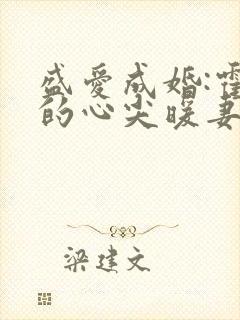 盛爱成婚:霍
的心尖暖妻
梁建文